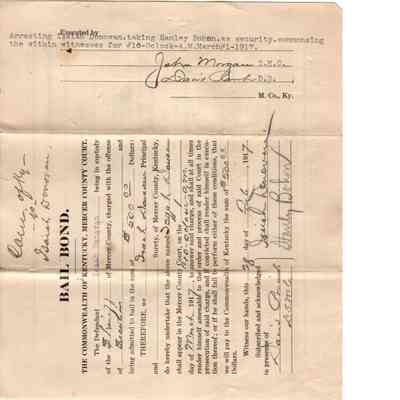 Executed by
Arresting Isaiah Donovan.taking Hanley Bohon.as security.summonsing
the within witnesses for #10-Oclock-A.M.March/1-1917.
John Morgan S.M.C.
D.S.
M. Co., Ky.
Com. of Ky—
vs
Isaiah Donovan.
BAIL BOND.
THE COMMONWEALTH OF KENTUCKY, MERCER COUNTY COURT.
The Defendant being in custody
of the Sheriff of Mercer County, charged with the offense
of
being admitted to bail in the sum of $ 200.00 Dollars:
THEREFORE, we Principal
and Surety, of Mercer County, Kentucky,
do hereby undertake that the above named
shall appear in Mercer County Court, on the
day of March 1917, to answer said charge, and shall at all times
render himself amenable to the order and process of said Court in the
prosecution of said charge, and if convicted shall render himself in execu-
tion thereof; or if he shall fail to perform either of these conditions, that
we will pay to the Commonwealth of Kentucky the sum of $200.00
Dollars.
Witness our hands, this 28 day of Feb 1917
Isaiah Donovan
Hanley Bohon
Subscribed and acknowledged
in presence of